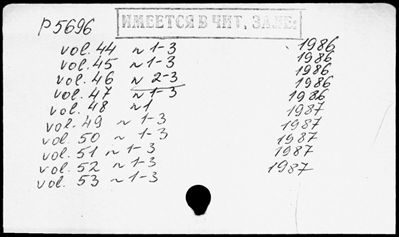 P5696
ИМЕЕТСЯ В ЧИТ. ЗАЛЕ.
vol. 44 ~ 1-3 1986
vol. 45 ~ 1-3 1986
vol. 46 ~ 2-3 1986
vol. 47 ~ 1-3 1986
vol. 48 ~ 1 1986
vol. 49 ~ 1-3 1987
vol. 50 ~ 1-3 1987
vol. 51 ~ 1-3 1987
vol. 52 ~ 1-3 1987
vol. 53 ~ 1-3 1987